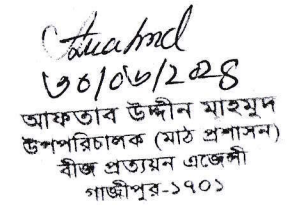 ৩০/০৬/২০২৪
আফতাব উদ্দীন মাহমুদ
উপপরিচালক (মাঠ প্রশাসন)
বীজ প্রত্যয়ন এজেন্সী
গাজীপুর-১৭০১